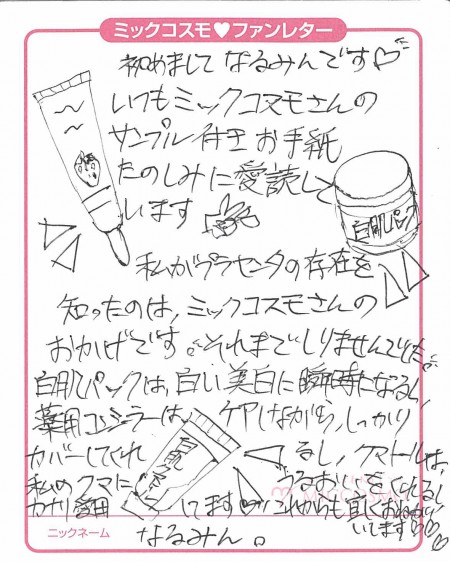 ミックコスモ♥ファンレター
初めまして なるみんです♡
いつもミックコスモさんの
サンプル付きお手紙
たのしみに愛読して
います
白肌パック
私がプラセンタの存在を
知ったのは、ミックコスモさんの
おかげです。それまでしりませんでした。
白肌パックは、白い美白に瞬時になるし、
薬用コンシーラーは、ケアしながら、しっかり
カバーしてくれるし、クマトールは、
私のクマにうるおいをくれるし
カナリ愛用してます♡これからも宜しくおねがい
いします♡♡
ニックネーム
なるみん。